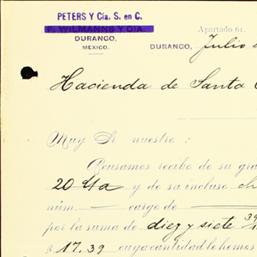 PETERS Y Cía. S. en C.
F. WILMANNS Y CIA
DURANGO,
MEXICO.
Apartado 61.
DURANGO, Julio
Hacienda de Santa
Muy Sr nuestro:
Acusamos recibo de su gra
20 Ya y de su incluso ch
núm. cargo de
por la suma de diez y siete 39
$ 17.39 cuya cantidad le hemos